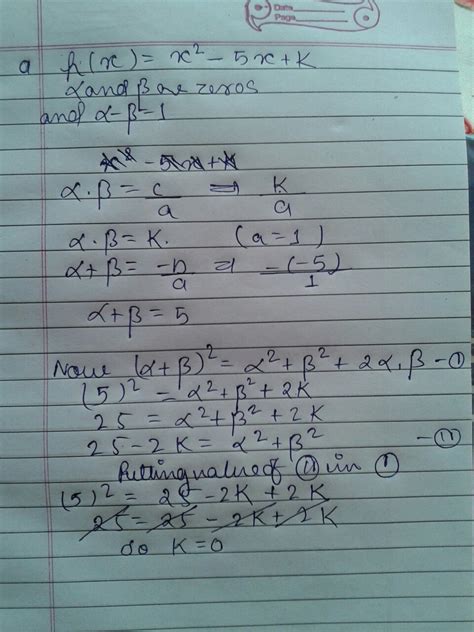 Date
Page
a p(x) = x² - 5x + K
α and β are zeros
and α - β = 1
x² - 5x + K
α . β = c/a ⇒ K/a
α . β = K. (a = 1)
α + β = -b/a ⇒ -(-5)/1
α + β = 5
Now (α + β)² = α² + β² + 2α.β - (I)
(5)² = α² + β² + 2K
25 = α² + β² + 2K
25 - 2K = α² + β² - (II)
Putting value of (II) in (I)
(5)² = 25 - 2K + 2K
25 = 25 - 2K + 2K
so K = 0